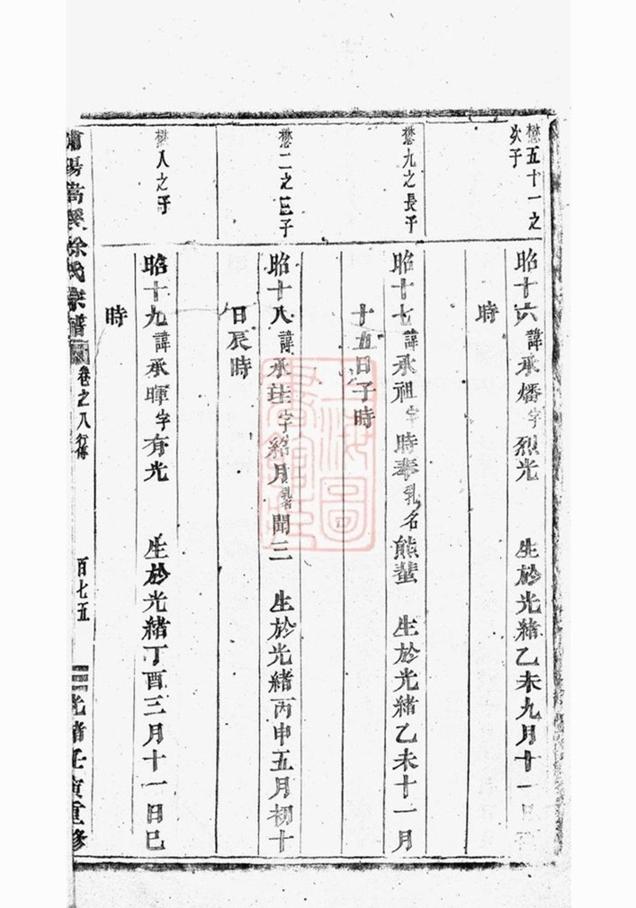 懋五十一之
次子
昭十六諱承燔字烈光 生於光緒乙未九月十一日
時
懋九之長子
昭十七諱承祖字時奉乳名熊蜚 生於光緒乙未十一月
十五日子時
懋二之三子
昭十八諱承珪字紹月乳名聞三 生於光緒丙申五月初十
日辰時
懋八之子
昭十九諱承暉字有光 生於光緒丁酉三月十一日巳
時
陽嵩溪徐氏宗譜 卷之八行傳 百七五 光緒壬寅重修